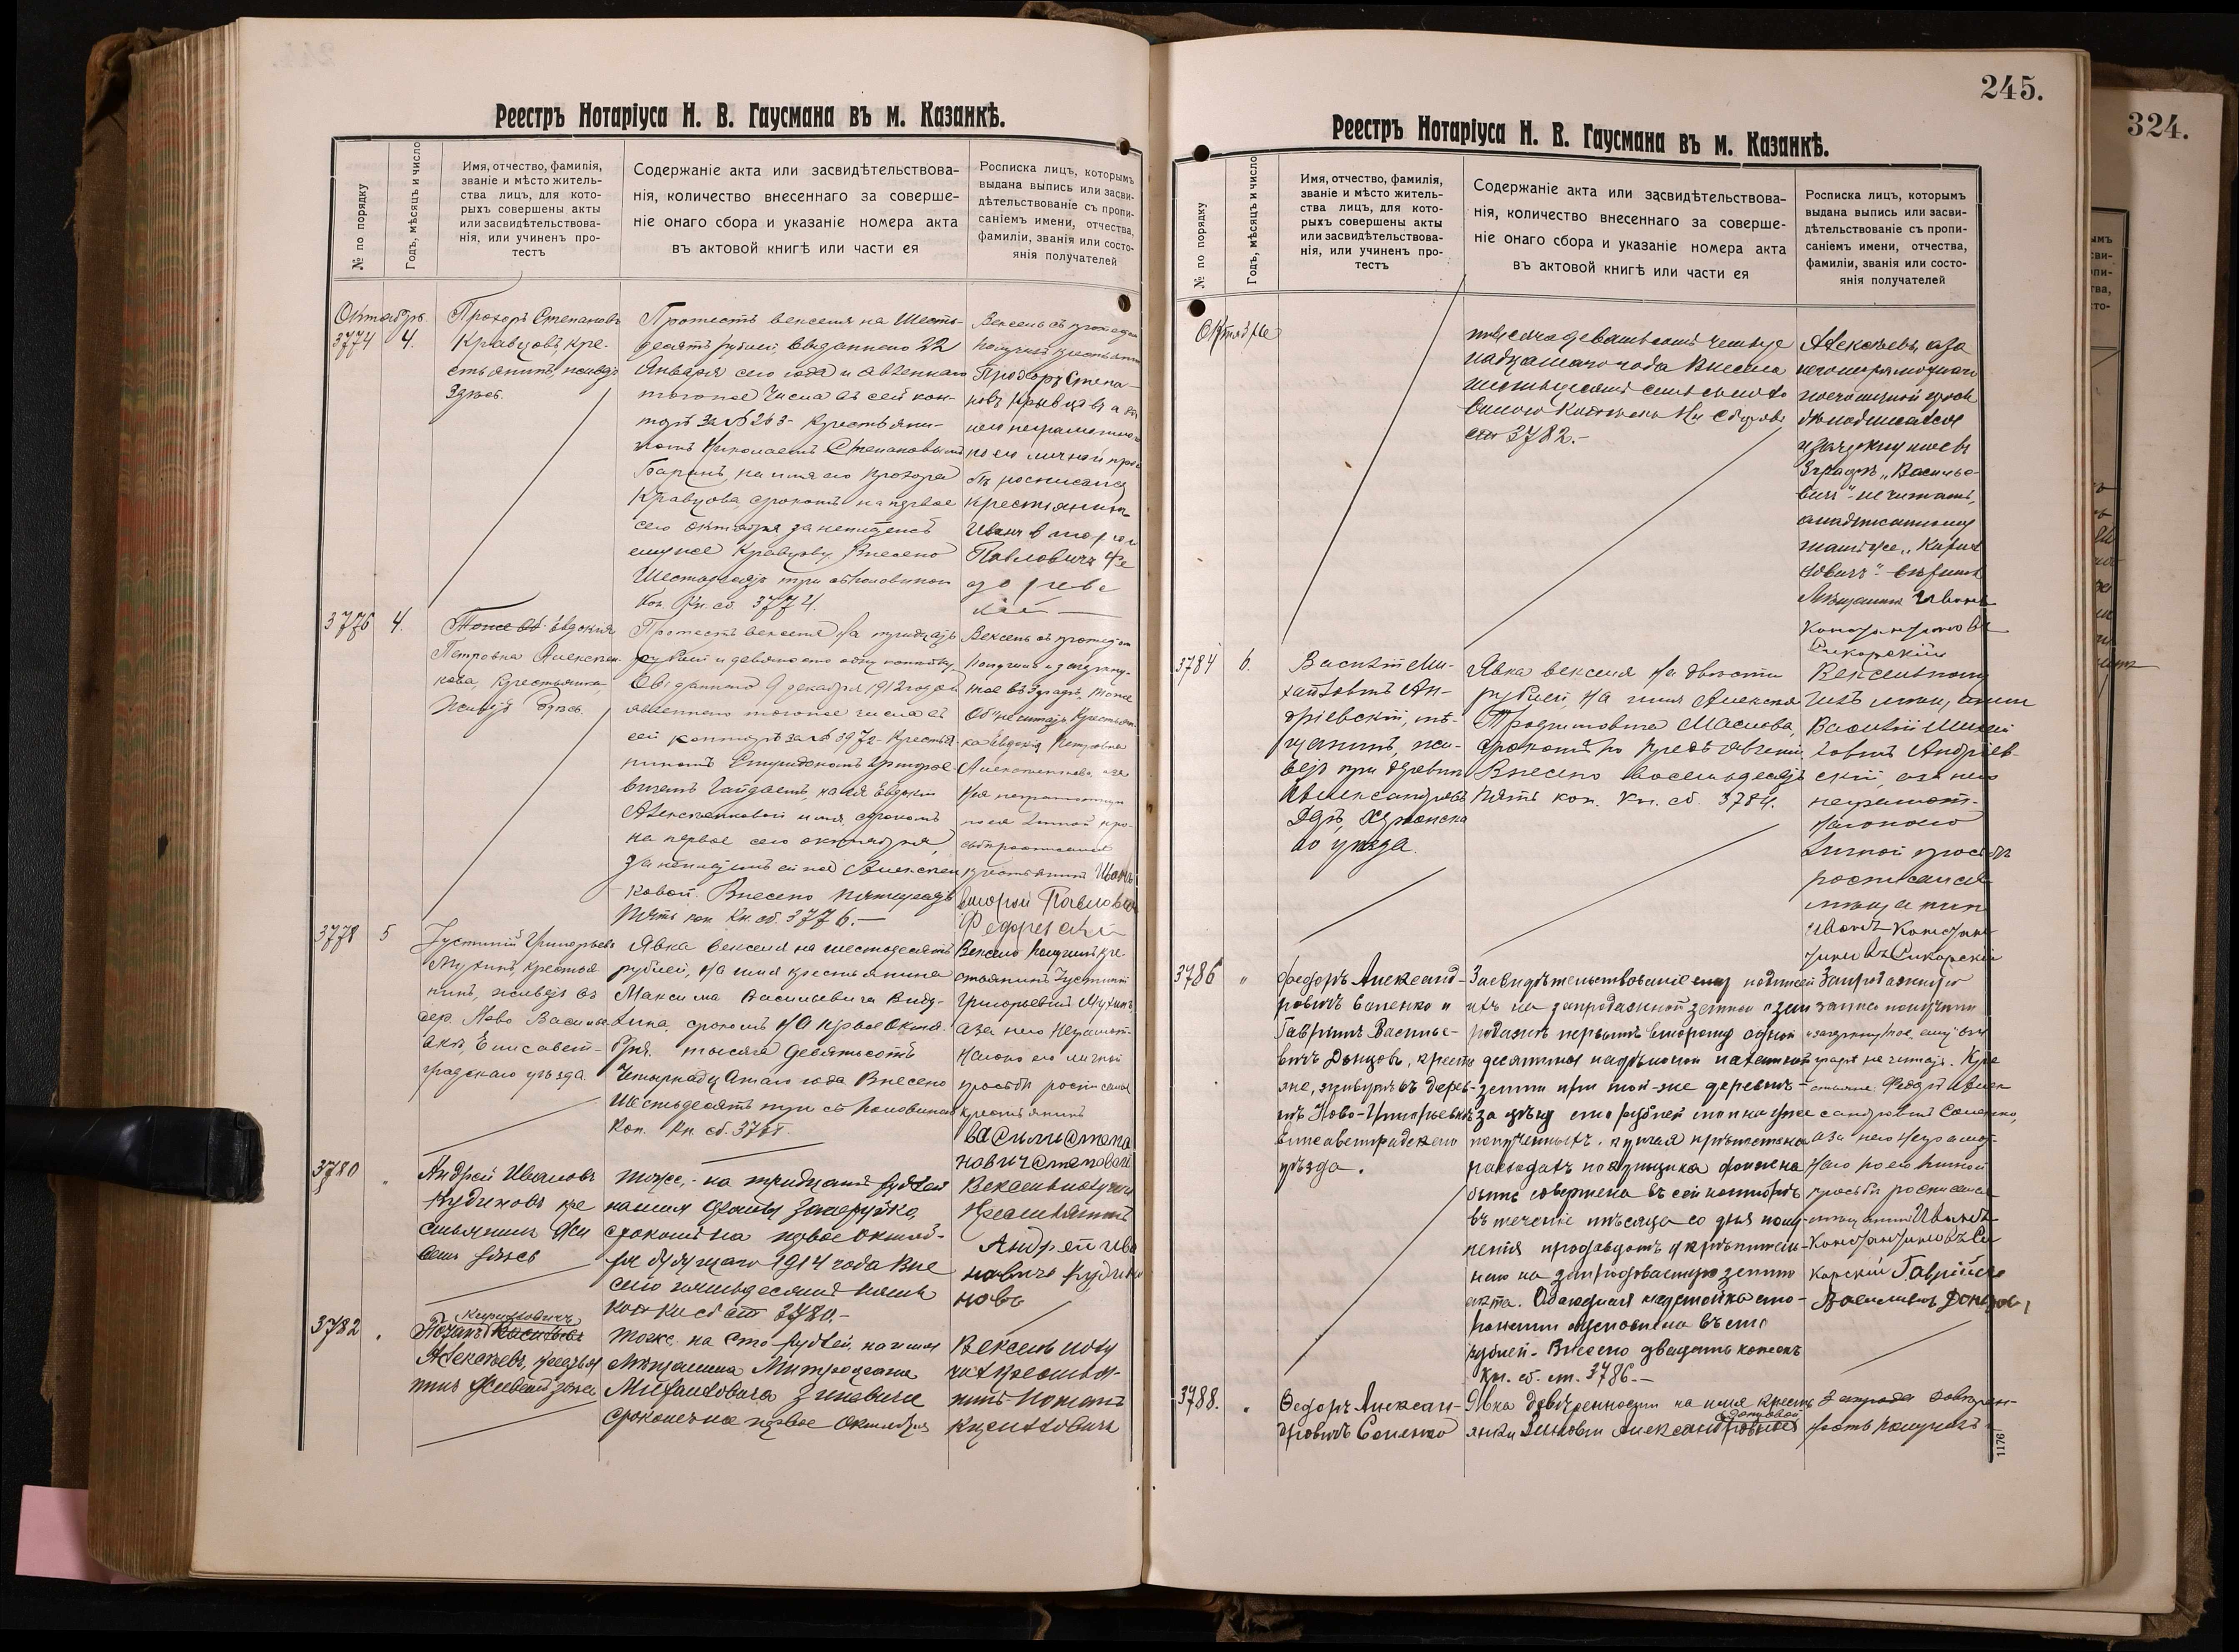 Реестръ Нотаріуса Н. В. Гаусмана въ м. Казанкѣ.
№ по порядку
Годъ, мѣсяцъ и число
Имя, отчество, фамилія,
званіе и мѣсто житель-
ства лицъ, для кото-
рыхъ совершены акты
или засвидѣтельствова-
нія, или учиненъ про-
тестъ
Содержаніе акта или засвидѣтельствова-
нія, количество внесеннаго за соверше-
ніе онаго сбора и указаніе номера акта
въ актовой книгѣ или части ея
Росписка лицъ, которымъ
выдана выпись или засви-
дѣтельствованіе съ пропи-
саніемъ имени, отчества,
фамиліи, званія или состо-
янія получателей
Октябрь
3774
4.
Прохоръ Степановъ
Кравцовъ, кре-
стьянинъ, живетъ
здѣсь.
Протестъ векселя на шесть-
десятъ рублей, выданнаго 22
Января сего года и явленнаго
того же числа въ сей кон-
торѣ за № 263 - крестьяни-
номъ Николаемъ Степановымъ
Баранъ, на имя его Прохора
Кравцова, срокомъ на первое
сего октября за неплатежъ
ему же Кравцову. Внесено
Шестьдесятъ три съ половиной
Коп. Кн. сб. 3774.
Вексель съ протестомъ
получилъ крестьянинъ
Прохоръ Степа-
новъ Кравцовъ а за
него неграмотнаго
по его личной прось
бѣ росписался
крестянинъ
Иванъ второй
Павловичъ Фе
дорев
скій
3776
4.
Тоже об. Евдокія
Петровна Алексеен-
кова, крестьянка,
живетъ здѣсь.
Протестъ векселя на тридцать
рублей и девяносто одну копѣйку,
выданнаго 9 декабря 1912 года и
явленнаго того же числа въ
сей конторѣ за № 3972 - крестья
ниномъ Спиридономъ Григорье-
вичемъ Гайдаемъ, на имя Евдокіи
Алексеенковой, срокомъ
на первое сего октября,
за неплатежъ ей же Алексеен
ковой. Внесено пятьдесятъ
пять коп. Кн. сб. 3776.-
Вексель съ протестомъ
получила и зачеркну-
тое въ 3 графѣ „тоже
об" не читать крестьян-
ка Евдокія Петровна
Алексеенкова, а за
нея неграмотную
по ея личной про-
сьбѣ росписался
крестьянинъ Иванъ
второй Павловичъ
Федоревскій
3778
5
Іустиній Григорьевъ
Мухинъ, крестья-
нинъ, живетъ въ
дер. Ново Василье-
вкѣ, Елисавет-
градскаго уѣзда.
Явка векселя на шестьдесятъ
рублей, на имя крестьянина
Максима Васильевича
срокомъ на первое Октя-
бря тысяча девятьсотъ
четырнадцатаго года Внесено
Шестьдесятъ три съ половиной
коп. Кн. сб. 3778.
Вексель получилъ кре-
стьянинъ Іустиній
Григорьевичъ Мухинъ
а за него неграмот-
наго по его личной
просьбѣ росписался
крестьянинъ
Василий Степа
нович Степовой
3780
"
Андрей Ивановъ
Кудиновъ кре
стьянинъ жи
ветъ здѣсь
Тоже,- на тридцать рублей
на имя
срокомъ на первое октяб-
ря будущаго 1914 года Вне
сено пятьдесятъ пять
коп Кн сб ст 3780.-
Вексель получилъ
Крестьянинъ
Андрей Ива
новичъ Кудин
новъ
3782
"
Кирилловичъ
Потапъ Васильевъ
Алексѣевъ, крестья
нинъ живетъ здѣсь
Тоже на сто рублей, на имя
Мѣщанина Митрофана
Михайловича Зиневича
срокомъ на первое октября
Вексель полу
чилъ крестья-
нинъ Потапъ
Кирилловичъ
245.
Реестръ Нотаріуса Н. В. Гаусмана въ м. Казанкѣ.
№ по порядку
Годъ, мѣсяцъ и число
Имя, отчество, фамилія,
званіе и мѣсто житель-
ства лицъ, для кото-
рыхъ совершены акты
или засвидѣтельствова-
нія, или учиненъ про-
тестъ
Содержаніе акта или засвидѣтельствова-
нія, количество внесеннаго за соверше-
ніе онаго сбора и указаніе номера акта
въ актовой книгѣ или части ея
Росписка лицъ, которымъ
выдана выпись или засви-
дѣтельствованіе съ пропи-
саніемъ имени, отчества,
фамиліи, званія или состо-
янія получателей
Октябрь
тысяча девятьсотъ четыр
надцатаго года Внесено
шестьдесятъ семь съ поло
виною Копѣекъ Кн сборовъ
ст 3782.-
Алексѣевъ, а за
него неграмотнаго
по его личной прось
бѣ подписался
и зачеркнутое въ
3 графѣ „Василье-
вичъ" не читать,
а надписанному
тамъ же „Кирил
ловичъ" вѣрить
Мѣщанинъ Иванъ
Константиновъ
Сикорскій
3784
6.
Василій Ми-
хайловичъ Ан-
дріевскій, мѣ-
щанинъ, жи-
ветъ при деревнѣ
Александров
Дарѣ, Херсонска
го уѣзда.
Явка векселя на двѣсти
рублей, на имя Алексѣя
Трофимовича Маслова,
срокомъ по предъявленіи
Внесено восемьдесятъ
пять коп. Кн. сб. 3784.
Вексель полу
чилъ мѣщанинъ
Василій Михай
ловичъ Андріев
скій, а за него
неграмот-
наго по его
личной просьбѣ
росписался
мѣщанинъ
Иванъ Констан
тиновъ Сикорскій
3786
"
Федоръ Александ-
ровичъ Саленко и
Гавріилъ Василье-
вичъ Донцовъ, крестья
не, живутъ въ дерев-
нѣ Ново-Григорьевкѣ
Елисаветградскаго
уѣзда.
Засвидѣтельствованіе подписей
ихъ на запродажной записи о
продажѣ первымъ второму одной
десятины надѣльной пахатной
земли при той-же деревнѣ
за цѣну сто рублей
полученныхъ. купчая крѣпость на
расходахъ покупщика должна
быть совершена въ сей конторѣ
въ теченіе мѣсяца со дня полу-
ченія продавцомъ укрѣпитель-
наго на запродаваемую землю
акта. Обоюдная неустойка сто-
ронами установлена въ сто
рублей. Внесено двадцать копеекъ
Кн. сб. ст. 3786.-
Запродажную
запись получили
и зачеркнутое „ему" въ 4
графѣ не читать. Кре
стьяне: Федоръ Алек
сандровичъ Саленко,
а за него неграмот
наго по его личной
просьбѣ росписался
мѣщанинъ Иванъ
Константиновъ Си
корскій Гавріилъ
Васильевичъ Донцовъ
3788.
"
Федоръ Алексан-
дровичъ Саленко
Явка довѣренности на имя кресть
янки Зиновіи Александровной
довѣрен-
ность получилъ
1176
324.